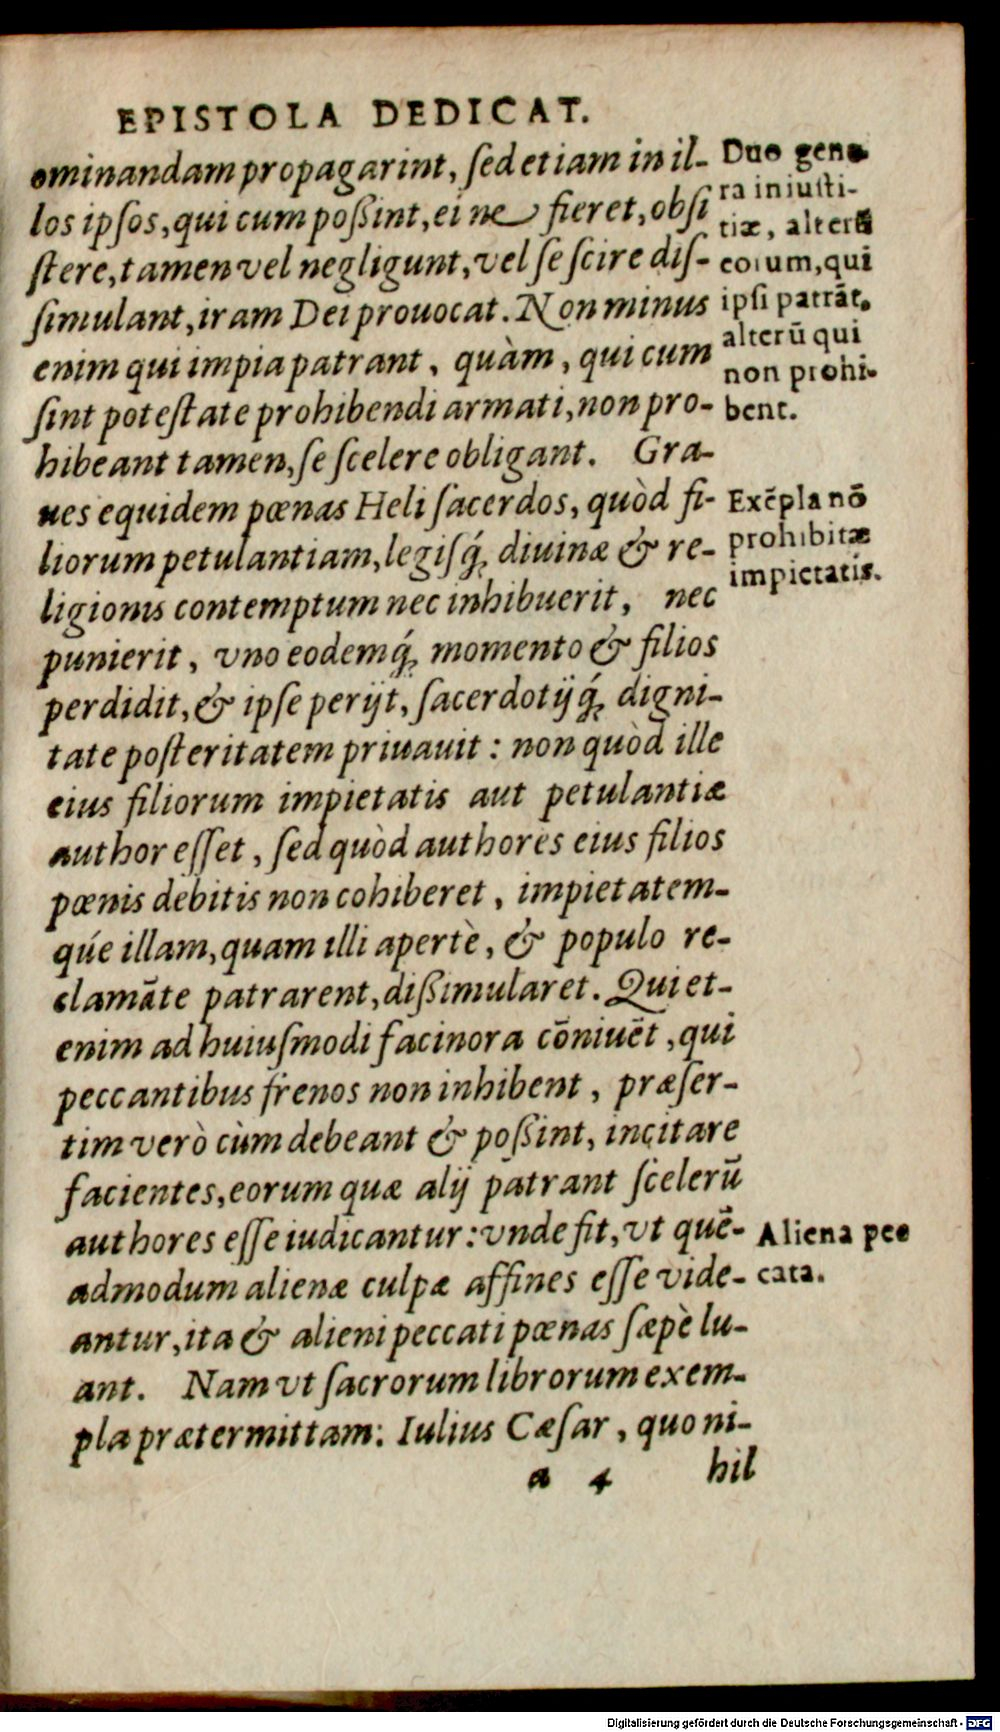 EPISTOLA DEDICAT.
ominandam propagarint, ſed etiam in il-
los ipſos, qui cum poßint, ei ne fieret, obſi
ſtere, tamen vel negligunt, vel ſe ſcire diſ-
ſimulant, iram Dei prouocat. Non minus
enim qui impia patrant, quàm, qui cum
ſint poteſtate prohibendi armati, non pro-
hibeant tamen, ſe ſcelere obligant. Gra-
ues equidem pœnas Heli ſacerdos, quòd fi-
liorum petulantiam, legiſq́; diuinæ & re-
ligionis contemptum nec inhibuerit, nec
punierit, vno eodemq́; momento & filios
perdidit, & ipſe perijt, ſacerdotijq́; digni-
tate poſteritatem priuauit: non quòd ille
eius filiorum impietatis aut petulantiæ
author eſſet, ſed quòd authores eius filios
pœnis debitis non cohiberet, impietatem-
qúe illam, quam illi apertè, & populo re-
clamāte patrarent, dißimularet. Qui et-
enim ad huiuſmodi facinora cōniuēt, qui
peccantibus frenos non inhibent, præſer-
tim verò cùm debeant & poßint, incitare
facientes, eorum quæ alij patrant ſcelerū
authores eſſe iudicantur: vnde fit, vt quē-
admodum alienæ culpæ affines eſſe vide-
antur, ita & alieni peccati pœnas ſæpè lu-
ant. Nam vt ſacrorum librorum exem-
pla prætermittam: Iulius Cæſar, quo ni-
a 4 hil
Duo gene
ra iniuſti-
tiæ, alterū
eorum, qui
ipſi patrāt,
alterū qui
non prohi-
bent.
Exēpla nō
prohibitæ
impietatis.
Aliena pec
cata.
Digitalisierung gefördert durch die Deutsche Forschungsgemeinschaft - DFG